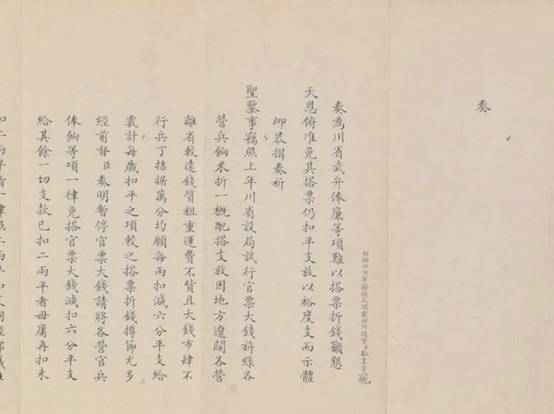 奏
奏為川省武弁俸廉等項難以搭票折錢籲懇
天恩俯准免其搭票仍扣平支放以裕度支而示體
卹恭摺奏祈
聖鑒事竊照上年川省設局試行官票大錢所綠各
營兵餉米折一概配搭支放因地方遼闊各營
離省較遠錢質粗重運費不貲且大錢市肆不
行兵丁拮据萬分均願每兩扣減六分平支給
覈計每歲扣平之項較之搭票折錢撙節尤多
經前督臣奏明暫停官票大錢請將各營官兵
俸餉等項一律免搭官票大錢減扣六分平支
給其餘一切支款已扣二兩平者毋庸再扣未